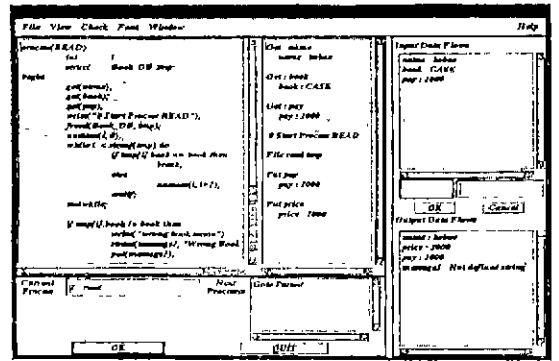 File View Check Font Window Help
process(READ)
int i
struct Book_DB tmp
begin
get(name),
get(book),
get(pay),
write("# Start Process READ"),
fread(Book_DB, tmp),
while i < sizeof(tmp) do
if tmp[i].book == book then
break,
else
endif,
endwhile,
if tmp[i].book != book then
put(message),
Get name
name : hebae
Get : book
book : CASE
Get : pay
pay : 2000
# Start Process READ
File read tmp
Put pay
pay : 2000
Put price
price : 2000
Input Data Flows
name : hebae
book : CASE
pay : 2000
OK Cancel
Output Data Flows
name : hebae
price : 2000
pay : 2000
Not defined string
Current Process
Next Process
Goto Parent
OK QUIT